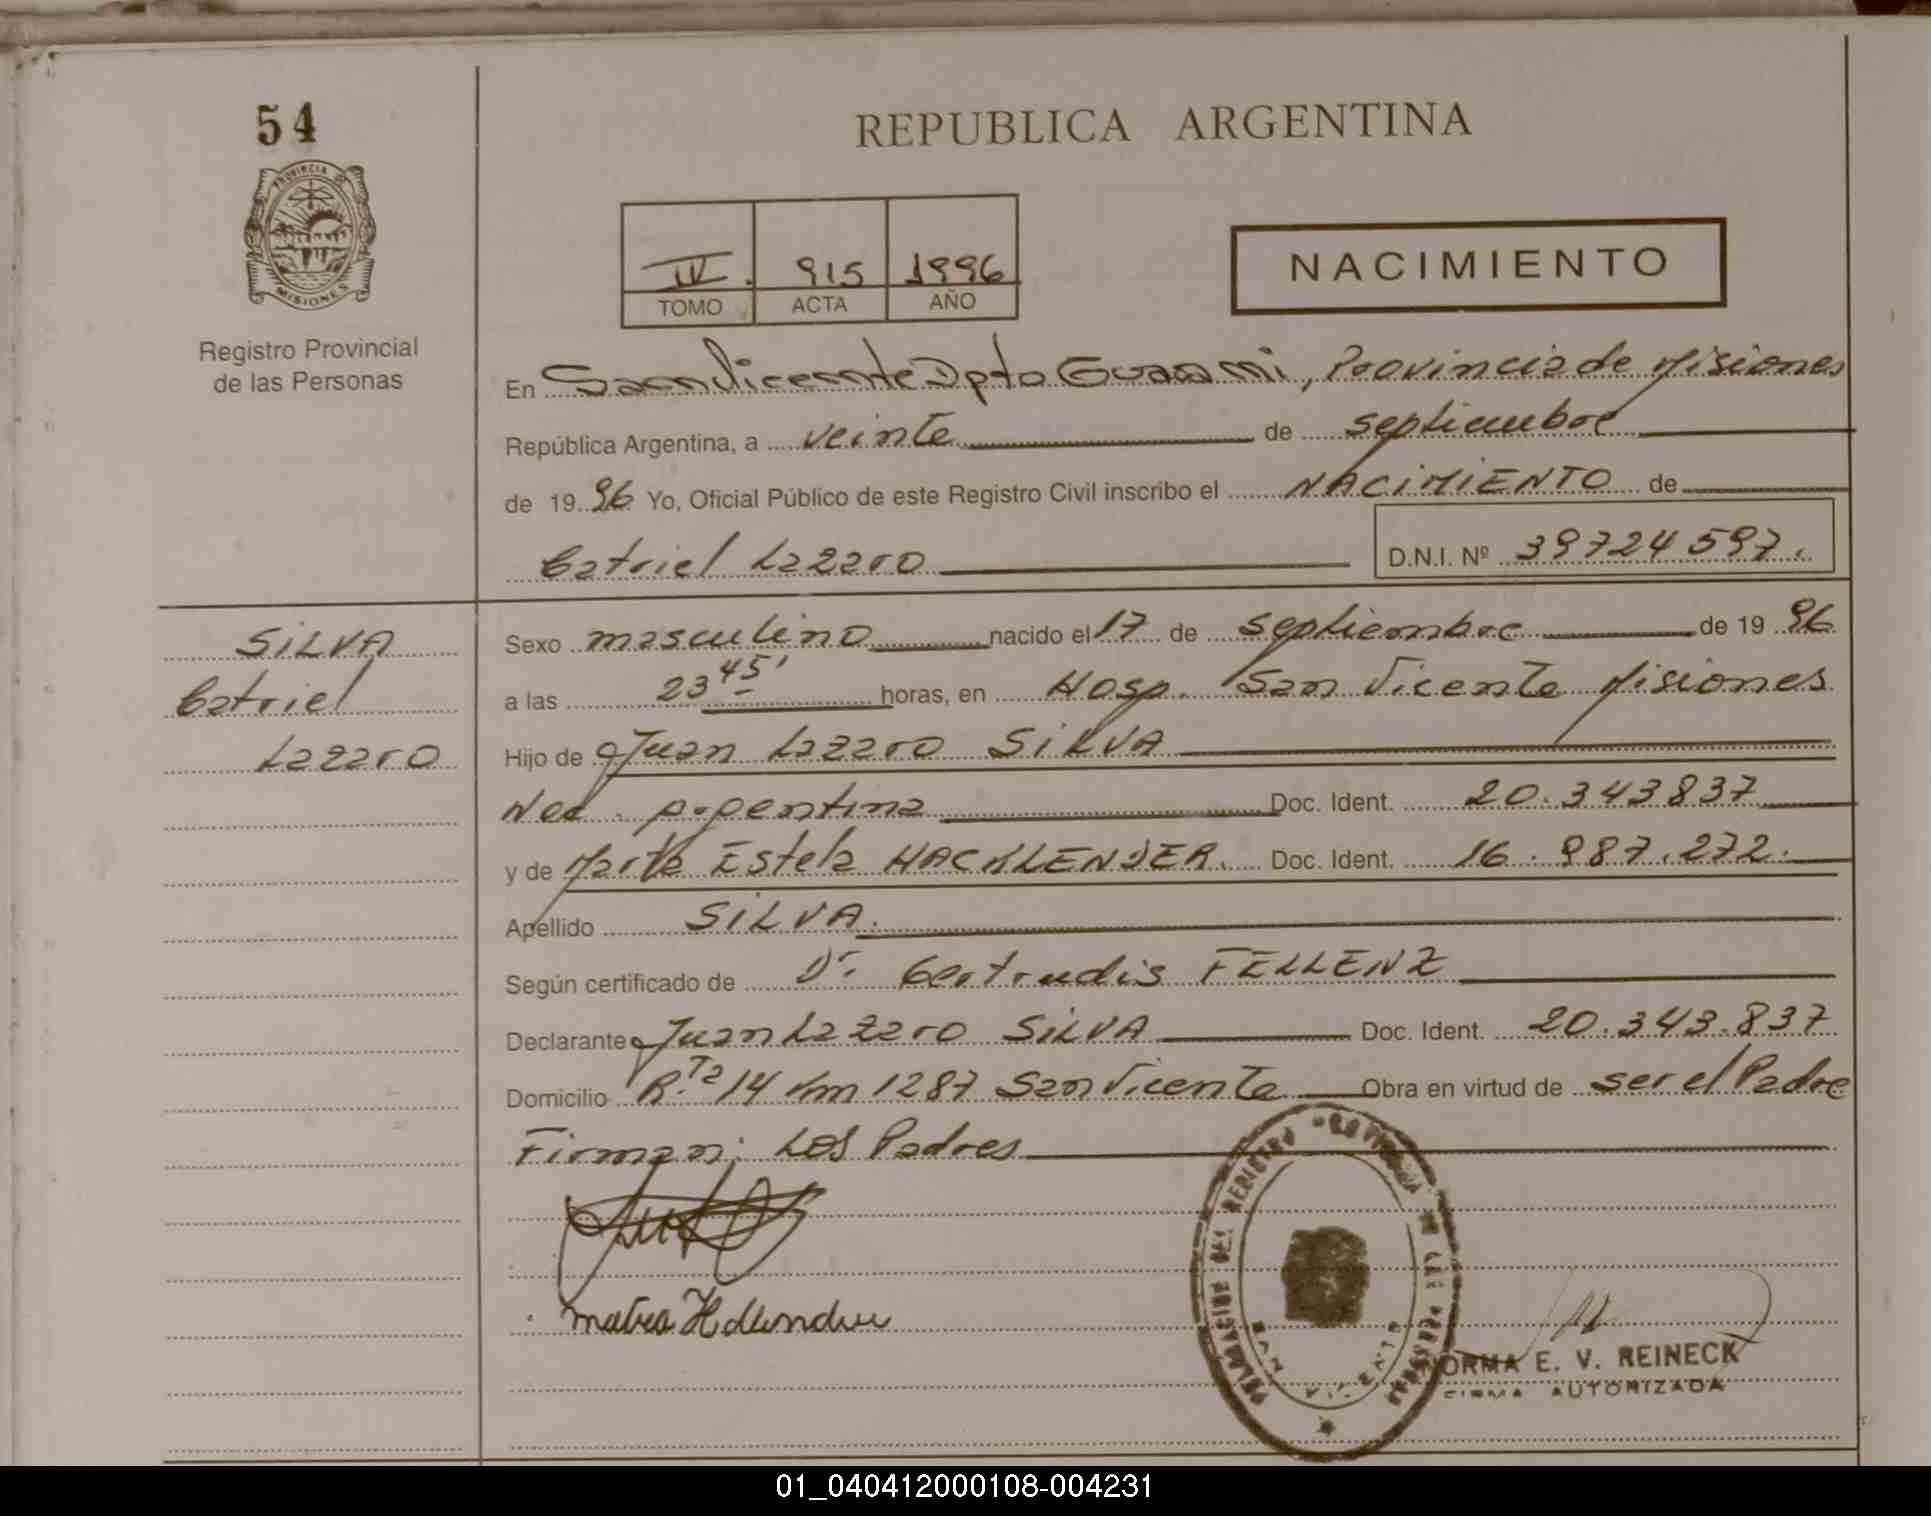 54
PROVINCIA DE
MISIONES
Registro Provincial
de las Personas
REPUBLICA ARGENTINA
IV. 915 1996
TOMO ACTA AÑO
NACIMIENTO
En San Vicente Dpto Guarani, Provincia de Misiones
República Argentina, a veinte de septiembre
de 1996 Yo, Oficial Público de este Registro Civil inscribo el NACIMIENTO de
Catriel Lazaro D.N.I. Nº 39724597.
SILVA
Catriel
Lazaro
Sexo masculino nacido el 17 de septiembre de 1996
a las 23 45' horas, en Hosp. San Vicente Misiones
Hijo de Juan Lazaro SILVA
Nac. Argentina Doc. Ident. 20.343837
y de Marta Estela HACKLENDER. Doc. Ident. 16.987.272.
Apellido SILVA.
Según certificado de Dr. Gertrudis FELLENZ
Declarante Juan Lazaro SILVA Doc. Ident. 20.343.837
Domicilio R.Ta 14 Km 1287 San Vicente Obra en virtud de ser el Padre
Firman: Los Padres
DELEGACION DEL REGISTRO PROVINCIAL DE LAS PERSONAS
SAN VICENTE
NORMA E. V. REINECK
FIRMA AUTORIZADA
01_040412000108-004231